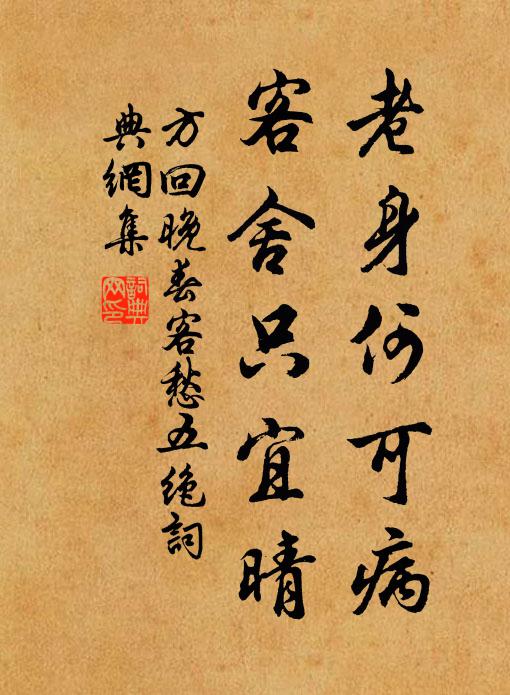 老身何可病
客舍只宜晴
方回晚春客愁五绝詞
典網集
詞典
网印